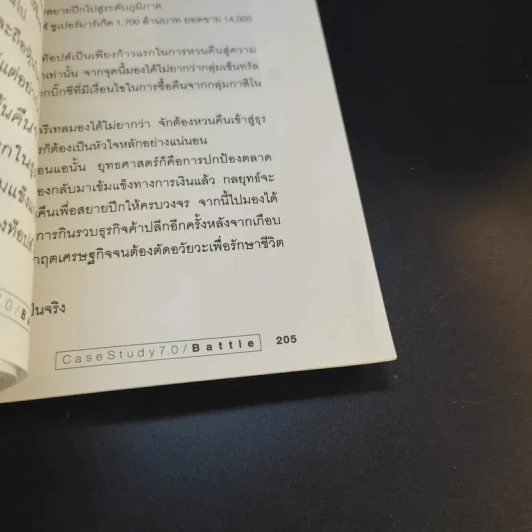 สยายปีกไปสู่ระดับภูมิภาค
ซูเปอร์มาร์เก็ต 1,700 ล้านบาท ยอดขาย 14,000
ท็อปส์เป็นเพียงก้าวแรกในการหวนคืนสู่ความ
เท่านั้น จากจุดนี้มองได้ไม่ยากว่ากลุ่มเซ็นทรัล
บิ๊กซีที่มีเงื่อนไขในการซื้อคืนจากกลุ่มกาสิโน
รีเทลมองได้ไม่ยากว่า จักต้องหวนคืนเข้าสู่ธุร
ก็ต้องเป็นหัวใจหลักอย่างแน่นอน
อนแอนั้น ยุทธศาสตร์ก็คือการปกป้องตลาด
องกลับมาเข้มแข็งทางการเงินแล้ว กลยุทธ์จะ
คืนเพื่อสยายปีกให้ครบวงจร จากนี้ไปมองได้
การกินรวบธุรกิจค้าปลีกอีกครั้งหลังจากเกือบ
กฤตเศรษฐกิจจนต้องตัดอวัยวะเพื่อรักษาชีวิต
ป็นจริง
CaseStudy7.0/Battle 205